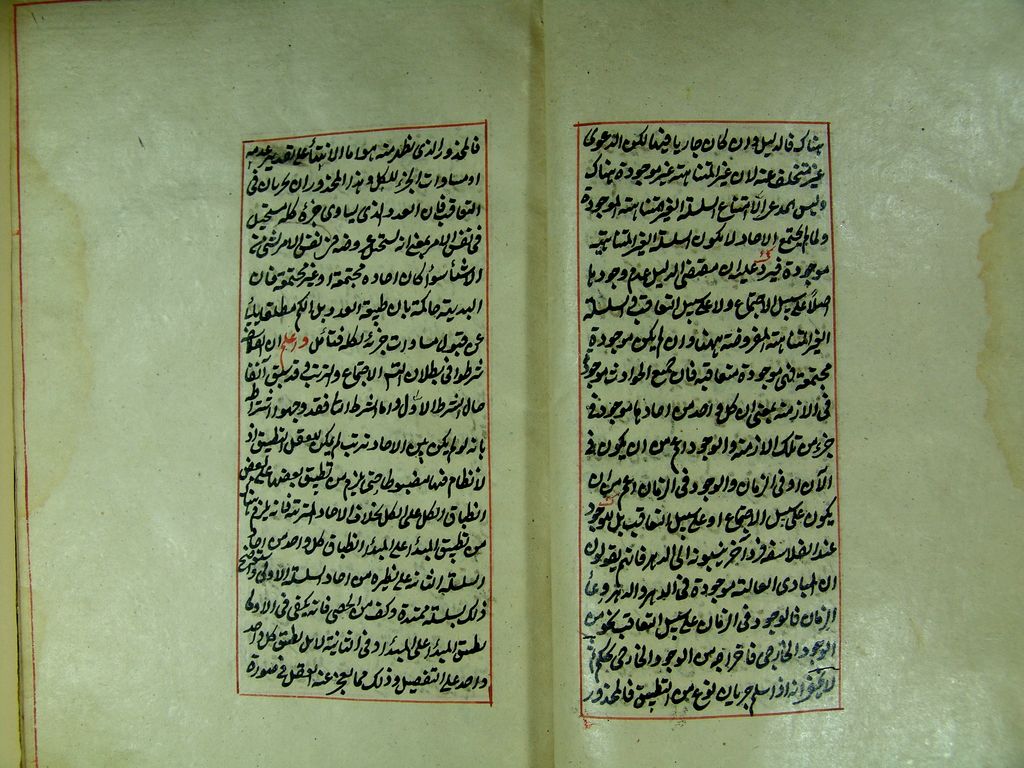 هناك فالدليل وان كان جاريا فيها لكن الدعوى
غير متخلفة عنه لان غير المتناهية غير موجودة هناك
وليس المدعى الا امتناع السلسلة الغير المتناهية الموجودة
ولما لم يجتمع الاحاد لا يكون السلسلة الغير المتناهية
موجودة فيرد عليه ان مقتضى الدليل عدم وجودها
اصلا على سبيل الاجتماع ولا على سبيل التعاقب في السلسلة
الغير المتناهية المفروضة ههنا وان لم يكن موجودة
مجتمعة فهي موجودة متعاقبة فان جميع الحوادث موجودة
في الازمنة بمعنى ان كل واحد من احادها موجود في
جزء من تلك الازمنة والوجود اعم من ان يكون في
الآن او في الزمان والوجود في الزمان اعم من ان
يكون على سبيل الاجتماع او على سبيل التعاقب بل الموجود
عند الفلاسفة فرد آخر ينسبونه الى الدهر فانهم يقولون
ان المبادى العالية موجودة في الدهر والدهر وعاء
الزمان فالوجود في الزمان على سبيل التعاقب نحو من
الوجود الخارجي فاخراجه من الوجود الخارجي تحكم ثم
لا يخفى انه اذا سلم جريان نوع من التطبيق فالمحذور
فالمحذور الذى يظهر منه هو اما الانتهاء على تقدير عدمه
او مساوات الجزء للكل وهذا المحذوران يجريان في
التعاقب فان العدد الذى يساوى جزءه كله مستحيل
في نفس الامر بمعنى انه يستحيل عروضه في نفس الامر لشيء من
الاشياء سواء كان احاده مجتمعة او غير مجتمعة فان
البديهة حاكمة بان طبيعة العدد بل الكم مطلقا يابى
عن قبول مساوات جزئه لكله فتأمل واعلم ان الحكماء
شرطوا في بطلان التس الاجتماع والترتب وقد سبق آنفا
حال الشرط الاول واما الشرط الثاني فقد وجهوا اشتراطه
بانه لو لم يكن بين الاحاد ترتب لم يكن للعقل التطبيق اذ
لا نظام فيها مضبوطا حتى يلزم من تطبيق بعضها على بعض
انطباق الكل على الكل بخلاف الاحاد المترتبة فانه يلزم هناك
من تطبيق المبدأ على المبدأ انطباق كل واحد من احاد
السلسلة الثانية على نظيره من احاد السلسلة الاولى وتوضيح
ذلك بسلسلة ممتدة وكف من الحصى فانه يكفى في الاولى
تطبيق المبدأ على المبدأ وفي الثانية لا بد من تطبيق كل واحد
واحد على التفصيل وذلك مما يعجز عنه العقل في صورة